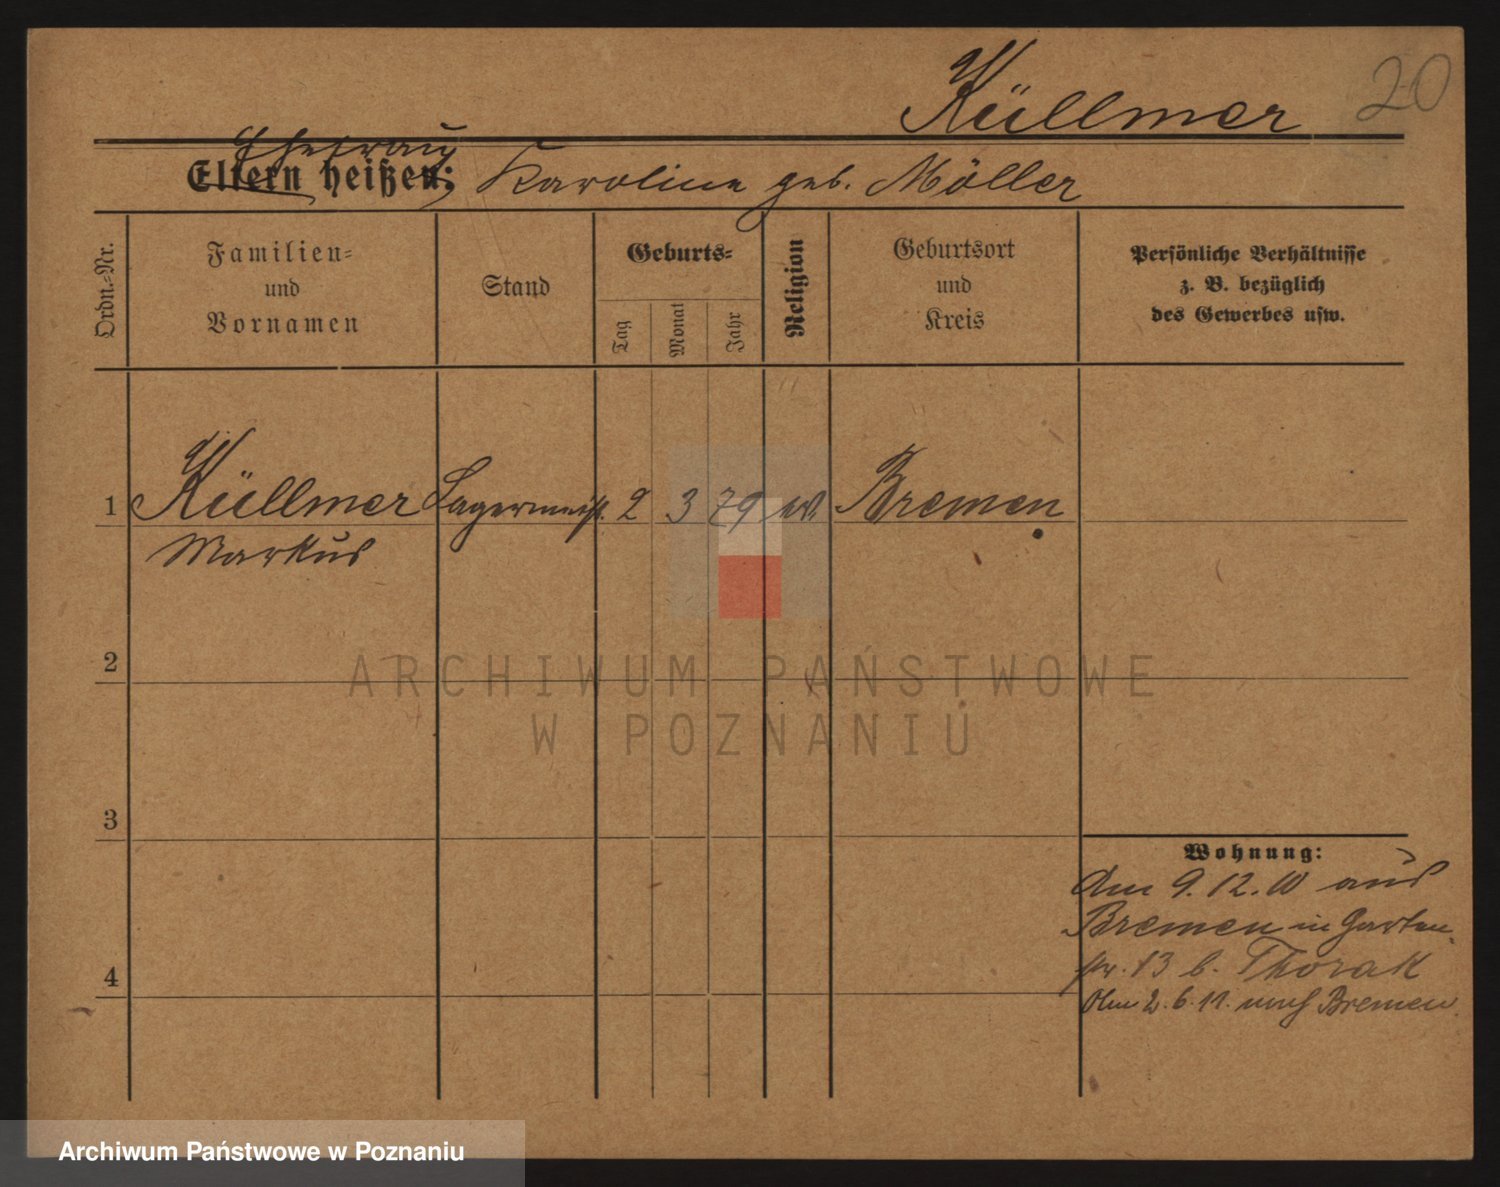 Küllmer 20
Ehefrau
Eltern heißen: Karoline geb. Möller
Ordn.-Nr.
Familien-
und
Vornamen
Stand
Geburts-
Tag
Monat
Jahr
Religion
Geburtsort
und
Kreis
Persönliche Verhältnisse
z. B. bezüglich
des Gewerbes usw.
1 Küllmer Lagermeist. 2 3 79 Bremen
Markus
2
ARCHIWUM PAŃSTWOWE
W POZNANIU
3
Wohnung:
Am 9.12.10 aus
Bremen in Garten
str. 13 b. Thorak
Am 2.6.11. nach Bremen.
4
Archiwum Państwowe w Poznaniu